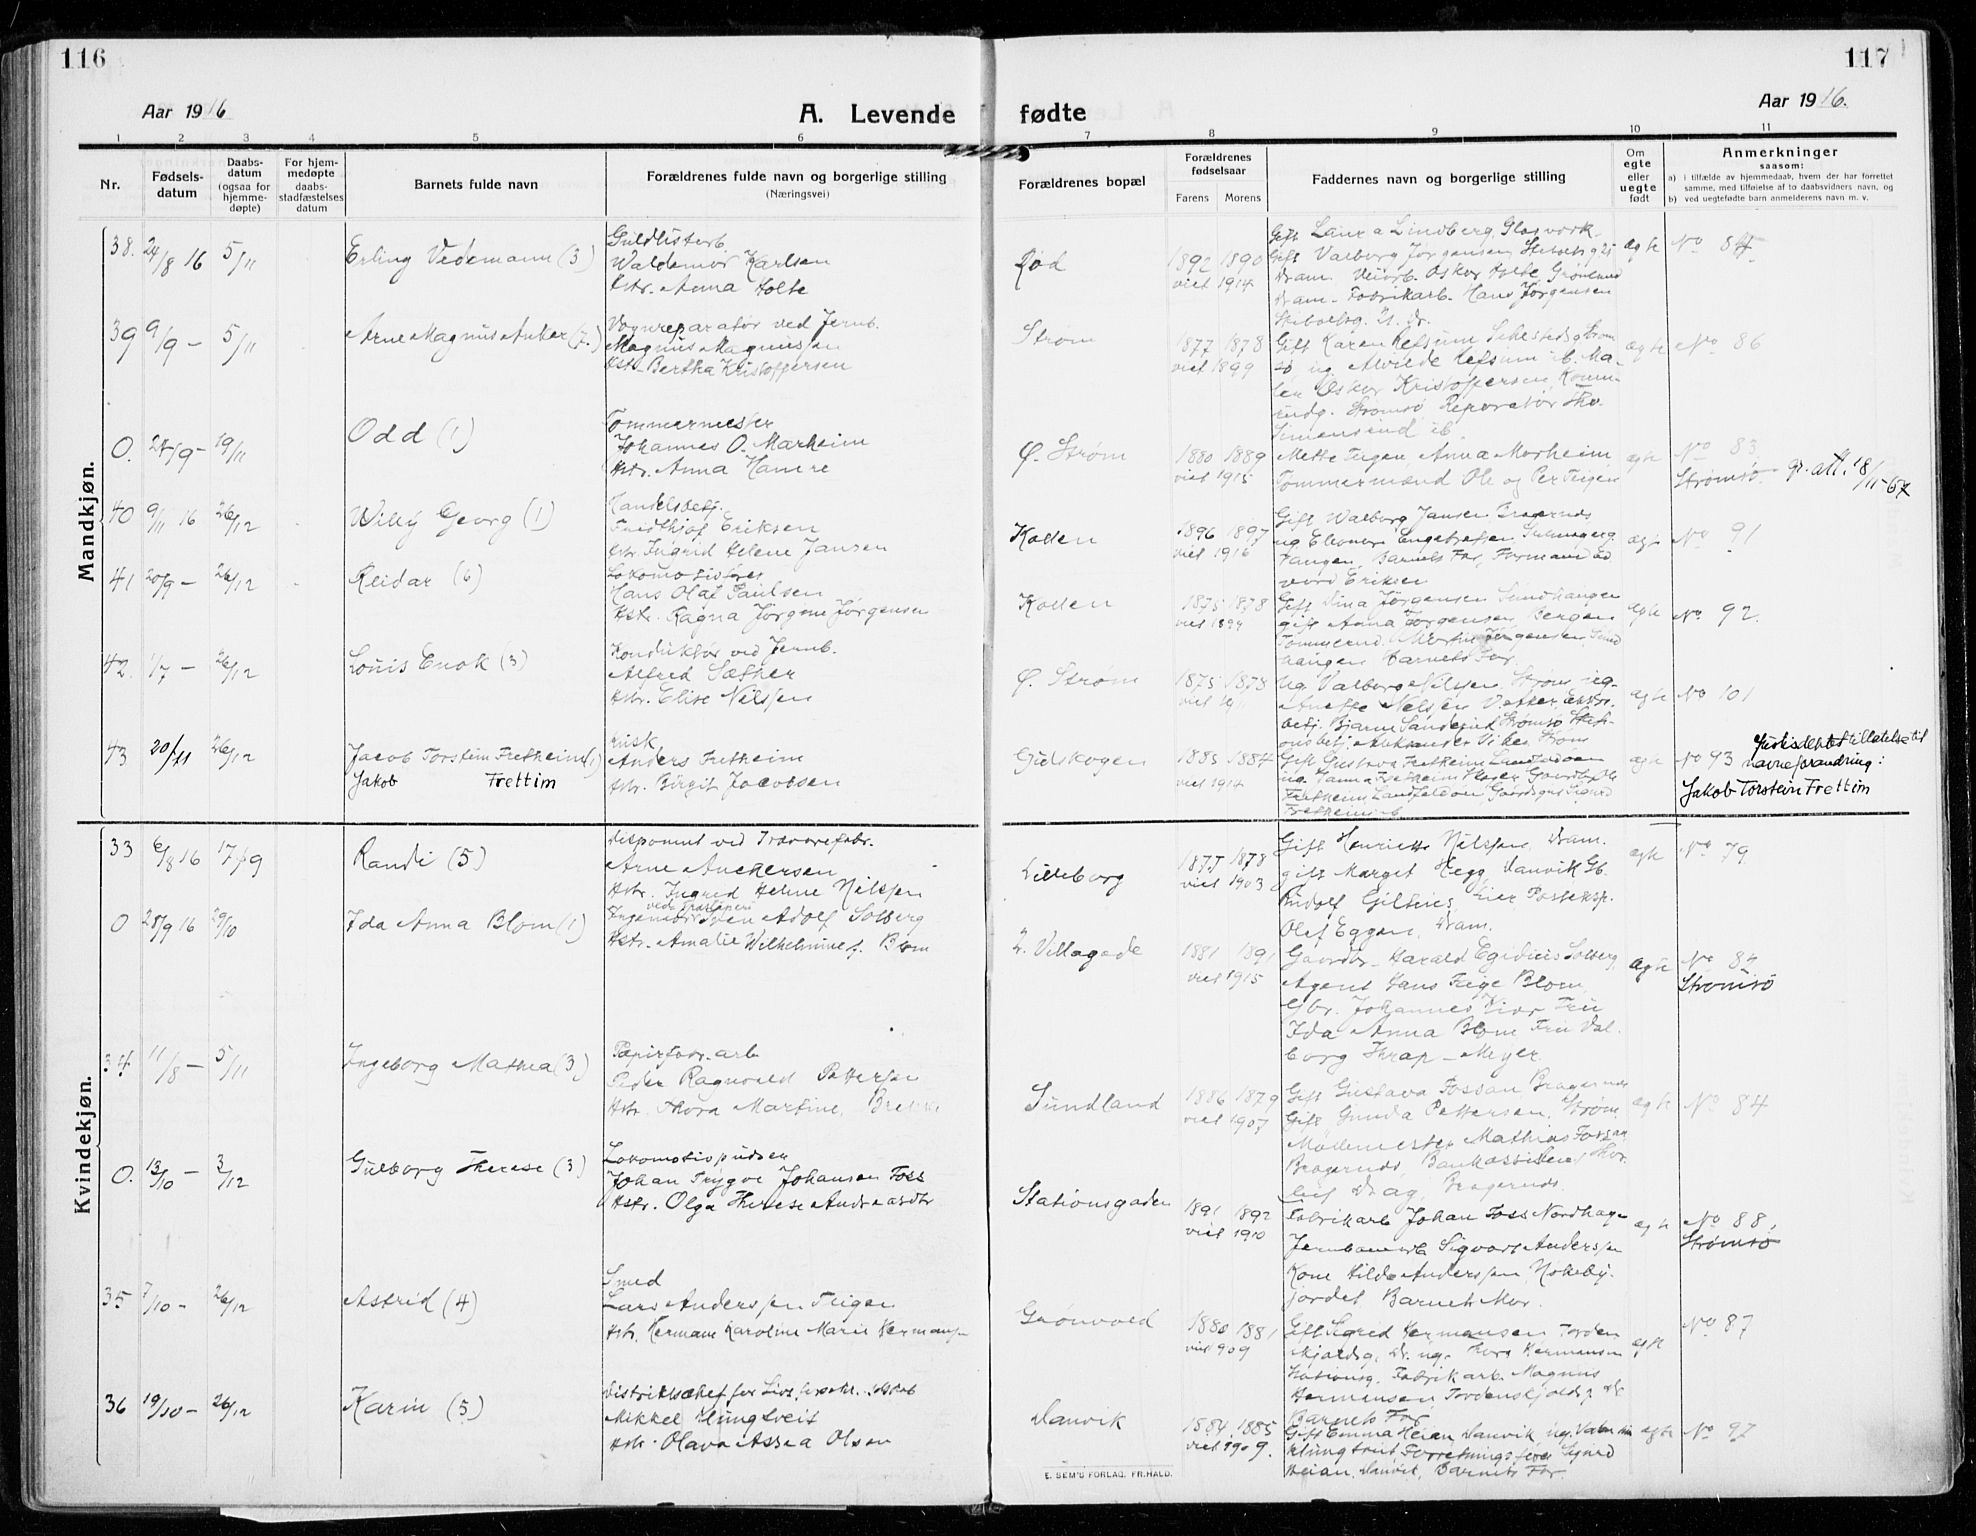 116
117
Aar 1916
A. Levende fødte
Aar 1916.
1 2 3 4 5 6 7 8 9 10 11
Nr.
Fødselsdatum
Daabsdatum (ogsaa for hjemmedøpte)
For hjemmedøpte daabsstadfæstelses datum
Barnets fulde navn
Forældrenes fulde navn og borgerlige stilling
(Næringsvei)
Forældrenes bopæl
Forældrenes fødselsaar
Farens Morens
Faddernes navn og borgerlige stilling
Om egte eller uegte født
Anmerkninger
saasom:
a) i tilfælde av hjemmedaab, hvem der har forrettet
samme, med tilføielse af to daabsvidners navn, og
b) ved uegtefødte barn anmelderens navn m. v.
Mandkjøn.
38. 24/8 16 5/11 Erling Vedemann (3)
Guldlisterb.
Waldemar Karlsen
Hstr. Anna Holte
Rød
1892 1890
viet 1914
Gift Laura Lindberg, Glasværk
Gift Valborg Jørgensen
Dram. Oskar Holte Grønland
Dram. Fabrikarb. Hans Jørgensen
ægte
No 84
39 9/9 – 5/11 Arne Magnus Anker (7.)
Vognreparatør ved Jernb.
Magnus Magnussen
Hstr. Bertha Kristoffersen
Strøm
1877 1878
viet 1899
Gift Karen Refsum
ug Alvilde Refsum ib. Ma-
ler Oskar Kristoffersen
Strømsø, Reparatør Tho.
Simensend ib.
ægte
No 86
0. 24/9 – 19/11 Odd (1)
Tømmermester
Johannes O. Marheim
Hstr. Anna Hamre
Ø. Strøm
1880 1889
viet 1915
Mette Teigen, Anna Marheim
Tømmermænd Ole og Per Teigen
ægte
No 83
Strømsø
gr. att. 18/11-67
40 9/11 16 26/12 Willy Georg (1)
Handelsbetj.
Fredthjof Eriksen
Hstr. Ingrid Helene Jansen
Kollen
1896 1897
viet 1916
Gift Walborg Jansen Bragernes
ug. Eleonor
Tangen, Barnets Far, Formand Ed
vard Eriksen
ægte
No 91
41 20/9 – 26/12 Reidar (6)
Lokomotivfører
Hans Olaf Paulsen
Hstr. Ragna Jørgine Jørgensen
Kollen
1875 1878
viet 1899
Gift Dina Jørgensen Sundhaugen
gift Anna Jørgensen, Bergen
Tømmermd. Martin Jørgensen, Sund
haugen Barnets Far.
ægte
No 92.
42. 1/7 – 26/12 Louis Enok (3)
Konduktør ved Jernb.
Alfred Sæther
Hstr. Elise Nilssen
Ø. Strøm
1875 1878
Ug. Valborg Nilssen, Strøm ug.
ægte
No 101
43 20/11 26/12 Jacob Torstein Fretheim (1)
Jakob Frettim
Anders Fretheim
Hstr. Birgit Jacobsen
Gulskogen
1885 1884
viet 1914
Gift Gustava Fretheim Landfaldøen
ægte
No 93 Justisdep tillatelse til
navneforandring:
Jakob Torstein Frettim
Kvindekjøn.
33 6/8 16 17/9 Randi (5)
Disponent ved Trævarefabr.
Arne Anchersen
Hstr. Ingrid Helene Nilssen
Lilleborg
1877 1878
viet 1903
Gift Henriette Nilssen, Dram.
gift Margit Hegg, Danvik Gb.
Rudolf Giltnes, Eier
Olef Eggen, Dram.
ægte
No 79
0 28/9 16 29/10 Ida Anna Blom (1)
Ingeniør Sven Adolf Solberg
Hstr. Amalie Wilhelmine f. Blom
2. Villagade
1881 1891
viet 1915
Gaardbr. Harald Egidius Solberg,
Agent Hans Feige Blom,
Gbr. Johannes Kiær Fru
Ida Anna Blom Fru Val-
borg Thrap-Meyer.
ægte
No 84
Strømsø
34. 11/8 – 5/11 Ingeborg Mathea (3)
Papirfabr. arb
Peder Ragnvald Pettersen
Hstr. Thora Martine
Sundland
1886 1879
viet 1907
Gift Gustava Fossan Bragernes
Gift Gunda Pettersen, Strøm,
Mathias Fossan
Bragernes, Thor-
leif Dag, Bragernes.
ægte
No 84
0. 13/10 – 3/12 Gulborg Therese (3)
Lokomotivpudser
Johan Trygve Johansen Foss
Hstr. Olga Therese Andreasdtr
Stationsgaden
1891 1892
viet 1910
Fabrikarb Johan Foss Nordhagen
Jernbanearb Sigvart Anderssen
Kone Hilda Anderssen, Nøkleby-
jordet, Barnets Mor.
ægte
No 88,
Strømsø
35 7/10 – 26/12 Astrid (4)
Smed
Lars Anderssen Teigen
Hstr. Hermane Karoline Marie Hermansen
Grønvold
1880 1881
viet 1909
Gift Sigrid Hermansen Torden
skjoldsg. Dr. ug. Thora Hermansen
Stationsg. Fabrikarb. Magnus
Hermansen, Tordenskjoldsg Dr
Barnets Far
ægte
No 87
36 19/10 – 26/12 Karin (5)
Distriktschef for Livsforsikr. selskab
Mikkel Klungtveit
Hstr. Olava Assea Olsen
Danvik
1884 1885
viet 1909.
Gift Emma Heian Danvik
Klungtveit, Forretningsfører Sigurd
Heian, Danvik, Barnets Far
ægte
No 97
E. SEM'S FORLAG, FR.HALD.